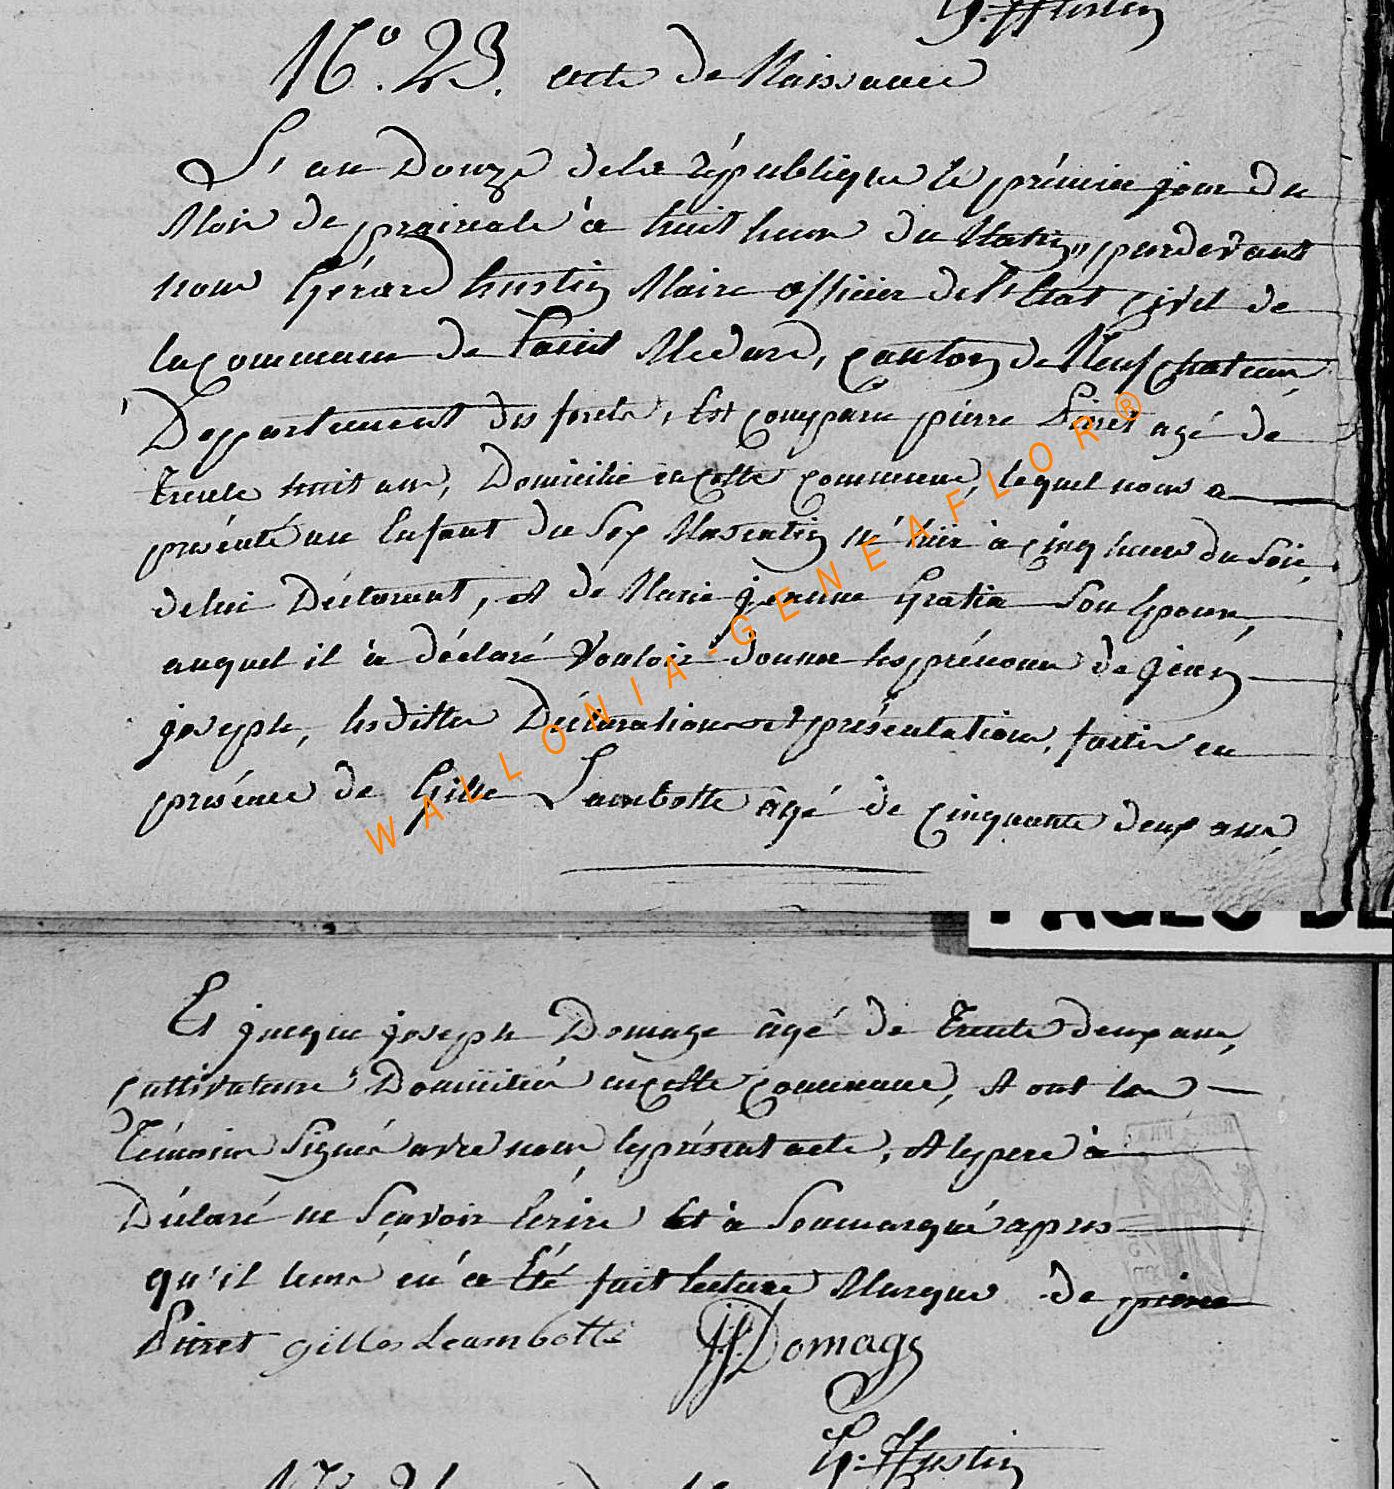 G. Hustin
N.° 23. acte de Naissance
L'an Douze dela république le prémier jour du
Mois de praireale à huit heure du Matin, pardevant
nous Gérard hustin Maire officier del'Etat civil de
la commune de Saint Medard, canton de Neufchateau,
Deppartement des forets, Est comparu pierre Piret agé de
Trente huit ans, Domicilié en cette commune, lequel nous a
présenté un Enfant du Sex Masculin né hiér à cinq heures du Soir,
de lui Déclarant, et de Marie jeanne Gratia Son Epouse,
auquel il à déclaré Vouloir donner les prénoms de jean
joseph, lesdittes Déclarations et présentations, faites en
présence de Gille Lambotte âgé de cinquante deux ans,
WALLONIA-GENEAFLOR®
PAGES DE
Et jacque joseph Domage âgé de Trente deux ans,
cultivateurs Domiciliés en cette commune, et ont les
Témoins Signés avec nous le présent acte, et le pere à
Déclaré ne Scavoir Ecrire et à Soumarqué apres
qu'il leurs en à Eté fait lecture Marque de pierre
Piret gilles Lambotte JJ Domage
G. Hustin